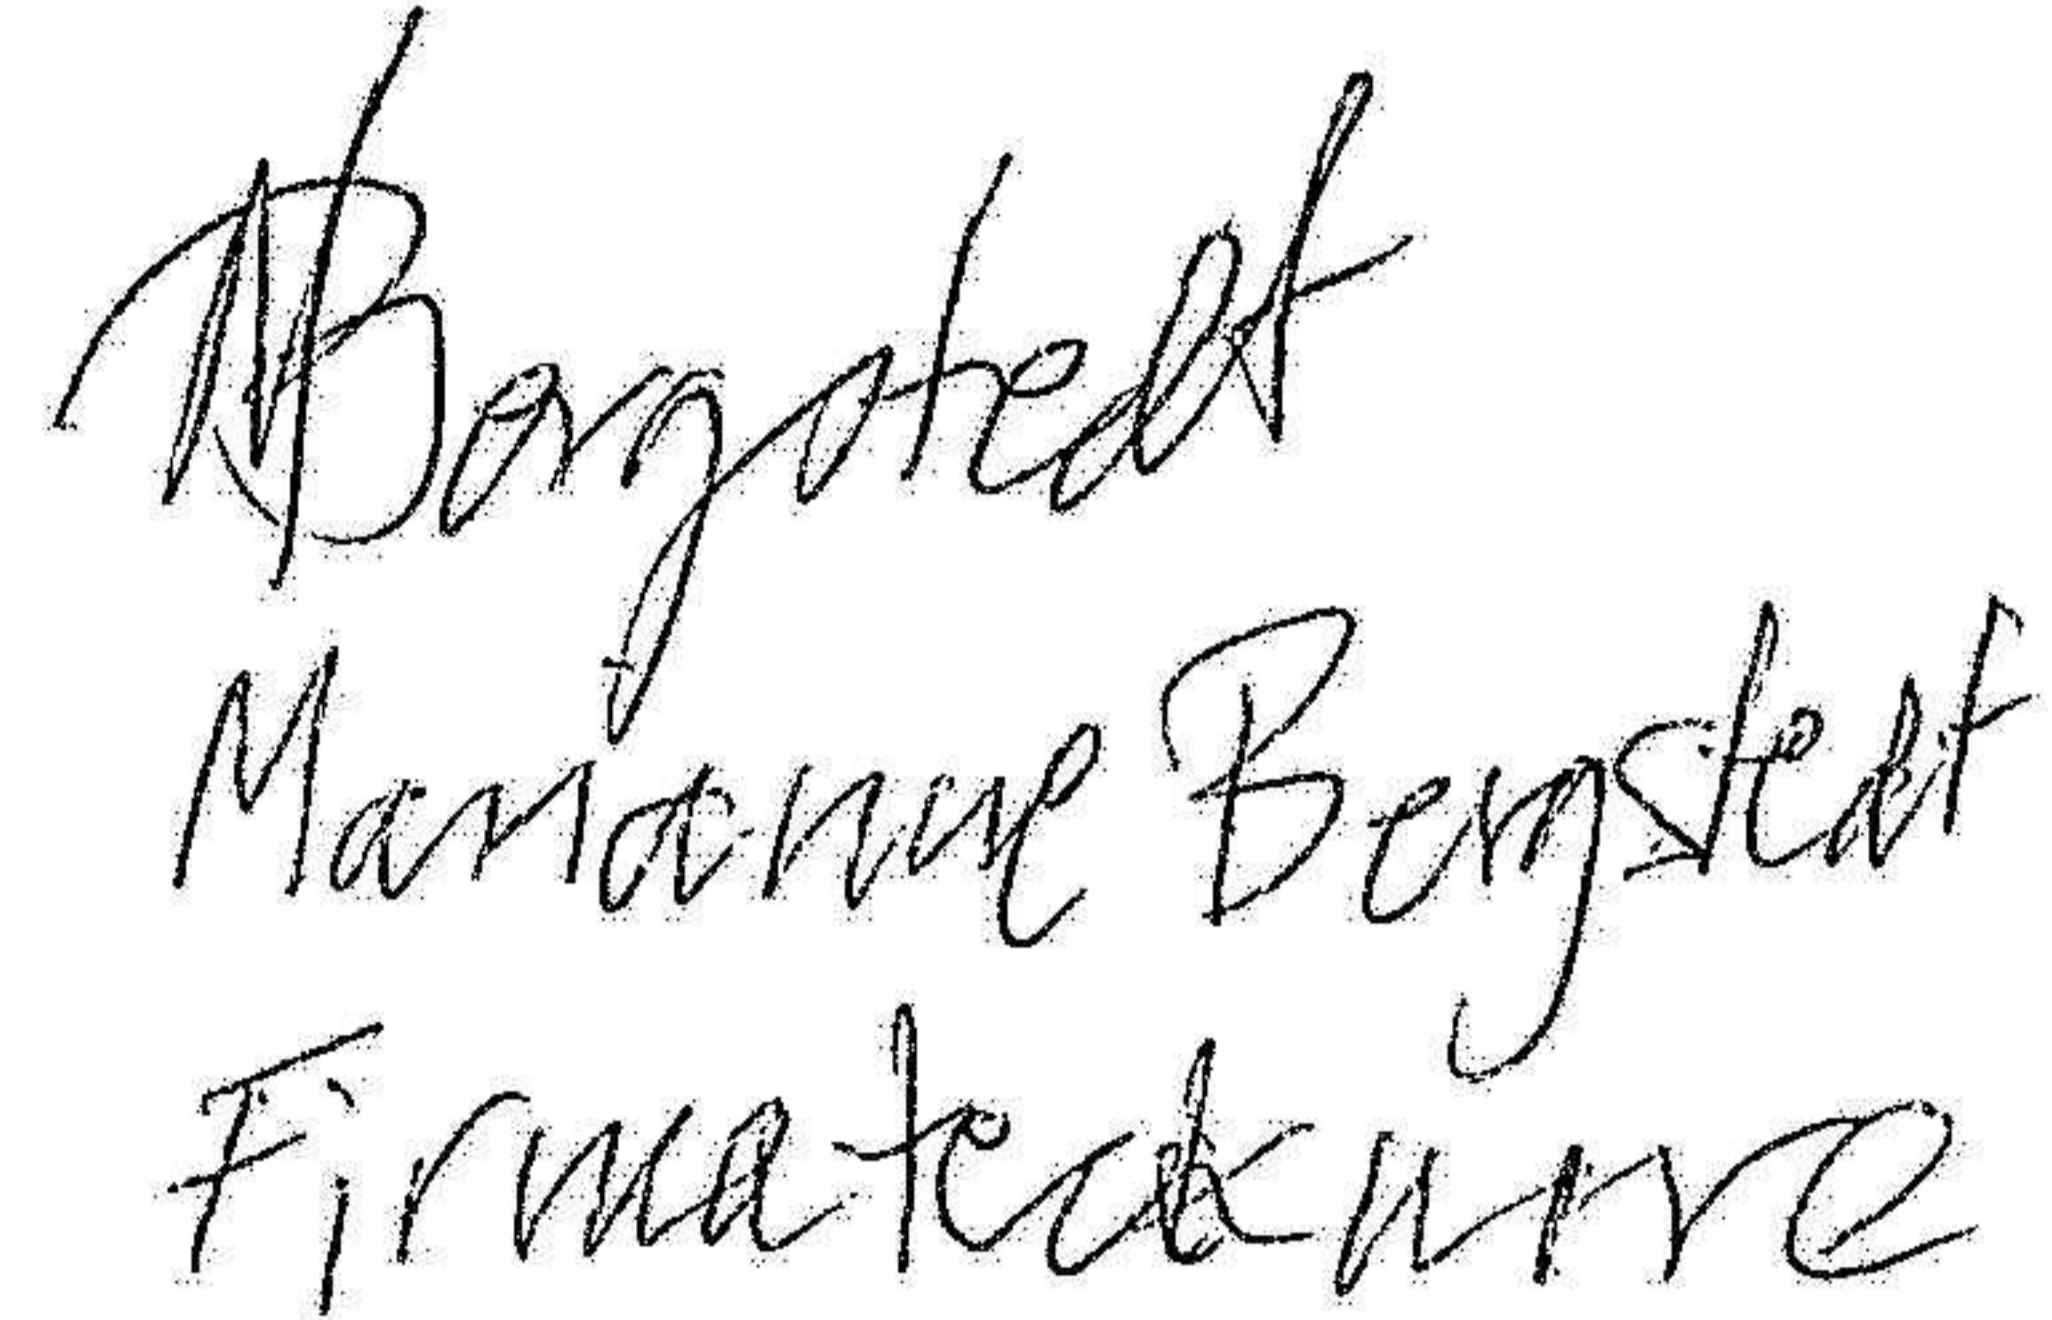 MBergstedt
Marianne Bergstedt
Firmatecknare